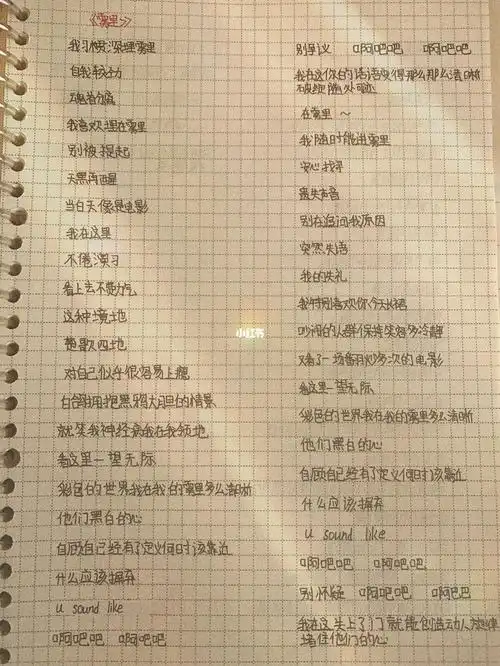 《雾里》
我习惯深埋雾里
自我较劲
魂首分离
我喜欢埋在雾里
别被提起
天黑再醒
当白天像是电影
我在这里
不倦演习
看上去不费力气
这种境地
楚歌四地
对自己似乎很容易上瘾
白鸽拥抱黑鸦大胆的情景
就笑我神经病我在我领地
看这里一望无际
彩色的世界我在我的雾里多么清晰
他们黑白的心
自顾自己经有了定义何时该靠近
什么应该摒弃
u sound like
啊吧吧 啊吧吧
别争议 啊吧吧 啊吧吧
我在这你的话语变得那么那么清晰
破绽随处可迹
在雾里～
我随时能进雾里
安心找寻
遗失声音
别在追问我原因
突然失语
我的失礼
我特别喜欢你今天长裙
吵闹的人群保持笑容多冷静
又看了一场翻炒多次的电影
看这里一望无际
彩色的世界我在我的雾里多么清晰
他们黑白的心
自顾自己经有了定义何时该靠近
什么应该摒弃
u sound like
啊吧吧 啊吧吧
别怀疑 啊吧吧 啊吧巴
我在这关上了门就能创造动人旋律
堵住他们的心
小红书